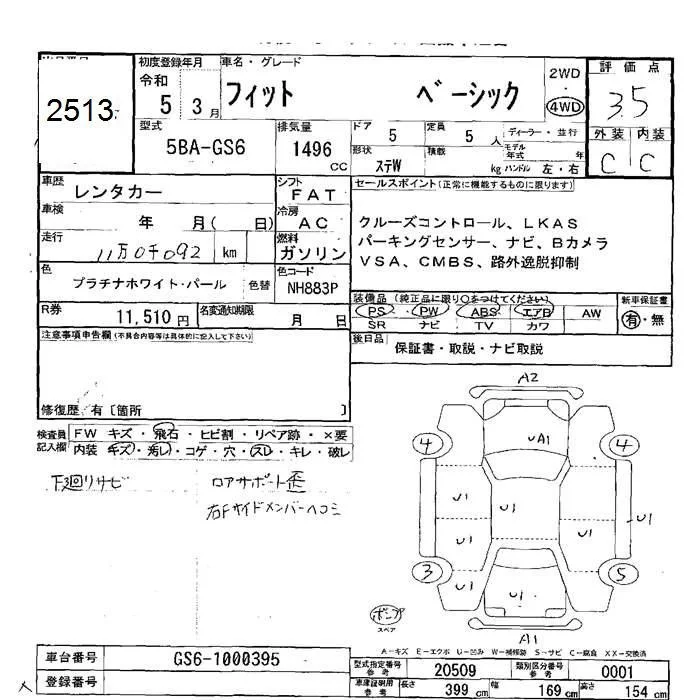 2513
初度登録年月
令和
5 3月
車名・グレード
フィット ベーシック
2WD
4WD
評価点
3.5
外装 内装
C C
型式
5BA-GS6
排気量
1496
CC
ドア
5
定員
5 人
ディーラー・並行
形状
ステW
積載
kg
モデル年式 年
ハンドル 左・右
車歴
レンタカー
シフト
FAT
セールスポイント(正常に機能するものに限ります)
車検
年 月( 日)
冷房
AC
クルーズコントロール、LKAS
走行
11万0千092 km
燃料
ガソリン
パーキングセンサー、ナビ、Bカメラ
VSA、CMBS、路外逸脱抑制
色
プラチナホワイト・パール
色替
色コード
NH883P
R券
11,510円
名変通知期限
月 日
装備品(純正品に限り○をつけてください)
PS・PW・ABS・エアB・AW
SR ナビ TV カワ
新車保証書
有・無
注意事項申告欄(不具合内容等は具体的に記入して下さい)
後日品
保証書・取説・ナビ取説
修復歴 有〔箇所 〕
検査員記入欄
FW キズ・飛石・ヒビ割・リペア跡・×要
内装 キズ・汚レ・コゲ・穴・スレ・キレ・破レ
下廻リサビ
ロアサポート歪
右Fサイドメンバーヘコミ
A2
4 UA1 4
U1 U1 U1
U1 U1
3 U1 U1 5
スペア
A1
A-キズ E-エクボ U-凹み W-補修跡 S-サビ C-腐食 XX-交換済
車台番号
GS6-1000395
登録番号
型式指定番号
参考
20509
類別区分番号
参考
0001
車庫証明用
参考
長さ 399 cm
幅 169 cm
高さ 154 cm